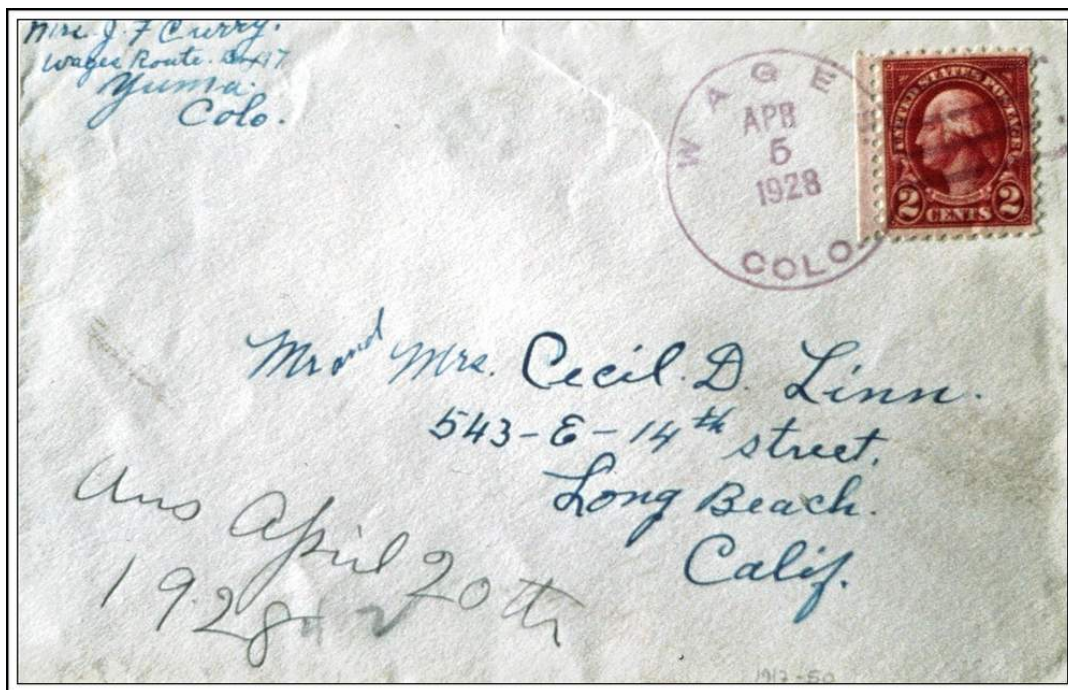 Mrs. J. F Curry.
Wages Route. Box 17
Yuma.
Colo.
WAGES
APR
5
1928
COLO.
UNITED STATES POSTAGE
2 CENTS 2
Mr and Mrs. Cecil. D. Linn.
543-E-14th street.
Long Beach.
Calif.
Ans April 20th
1928
1917-50